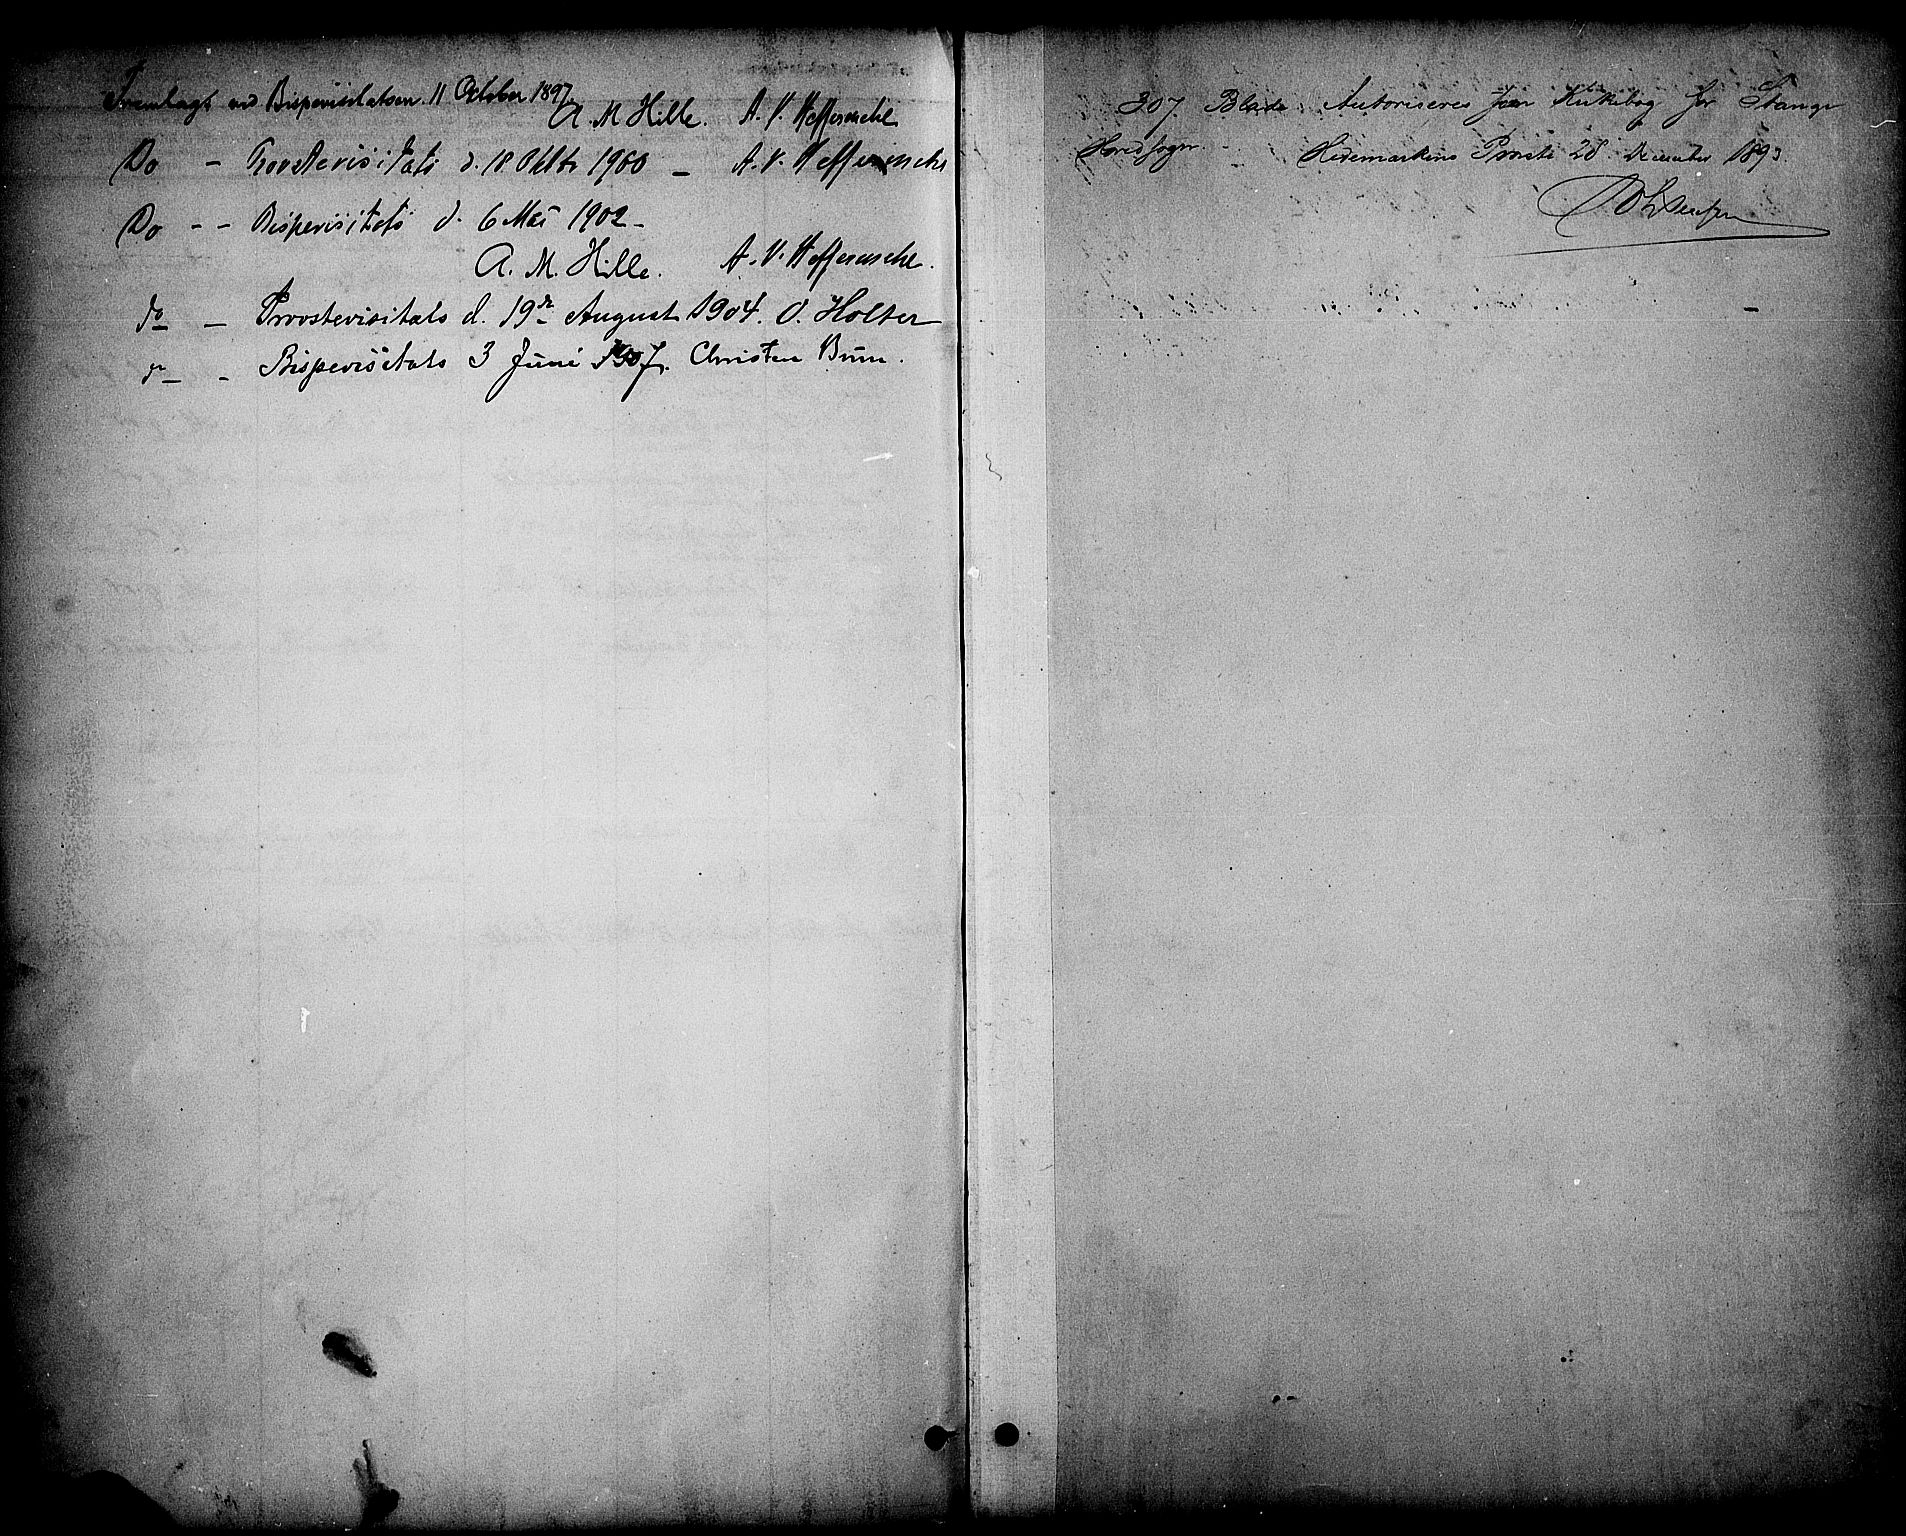 Fremlagt ved Bispevisitatsen 11 October 1897.
A. M Hille. A. V. Heffermehl
Do - Provstevisitats d. 18 Oktbr 1900 - A. V. Heffermehl
Do - - Bispevisitats d. 6 Mai 1902 -
A. M. Hille. A. V. Heffermehl.
do - Provstevisitats d. 19de August 1904. O. Holter
do - Bispevisitats 3 Juni 1907. Christen Brun.
207 Blade Autoriseres som Kirkebog for Stange
Hovedsogn. Hedemarkens Provsti 28 December 1893